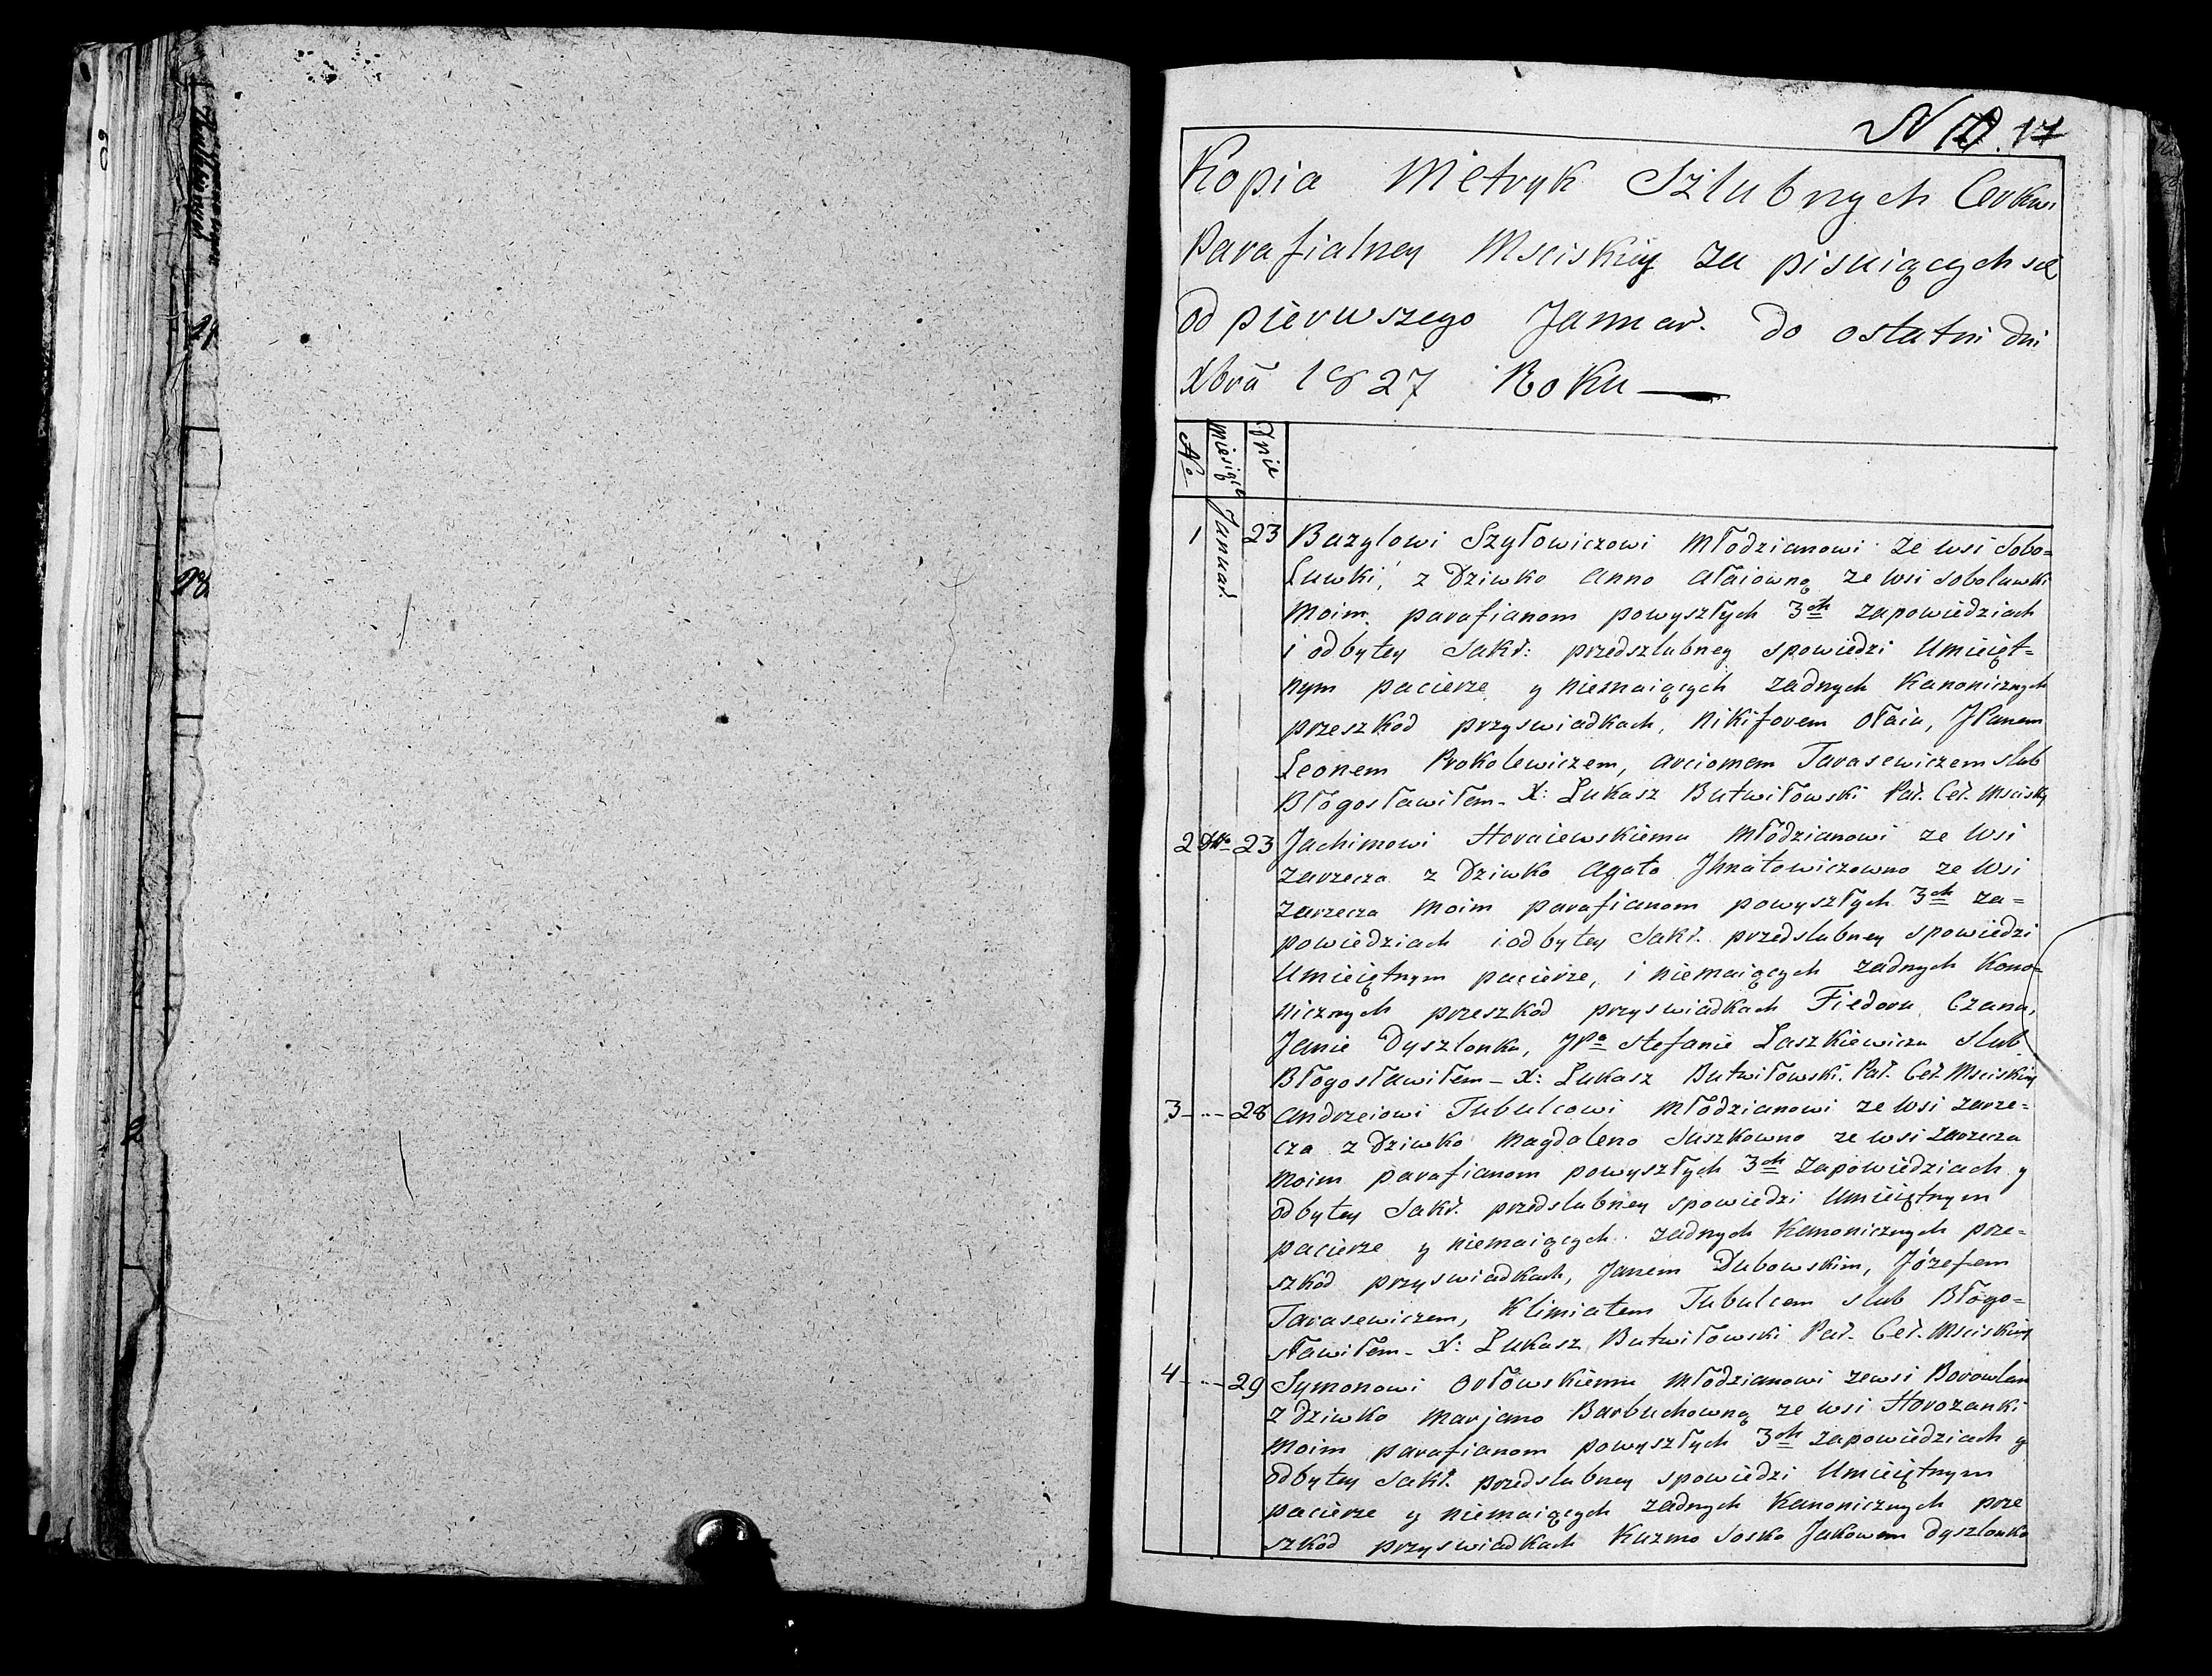 N 17
Kopia Metryk Szlubnych Cerkwi
Parafialney Msciskiey za pisuiących sie
od pierwszego Januar. do ostatni dni
Xbra 1827 Roku
No miesiąc Dnie
1 Januar. 23 Bazylowi Szyłowiczowi Młodzianowi ze wsi Sobo=
Luwki, z Dziwko Anno Ałaiowną ze wsi Soboluwki
Moim parafianom powyszłych 3ch zapowiedziach
i odbytey Sakr: przedszlubney spowiedzi Umieięt=
nym pacierze y niemaiących zadnych Kanonicznych
przeszkod przyswiadkach, Nikiforem Ołaiu, JPanem
Leonem Prokolewiczem, Arciomem Tarasewiczem slub
Błogosławiłem - X: Łukasz Butwiłowski Par. Cer. Mscisky
2 Dtto 23 Jachimowi Horaiewskiemu Młodzianowi ze Wsi
Zarzecza z Dziwko Agato Jhnatowiczowno ze Wsi
Zarzecza Moim parafianom powyszłych 3ch za=
powiedziach i odbytey Sakr. przedslubney spowiedzi
Umieiętnym pacierze, i niemaiących zadnych Kono=
nicznych przeszkod przyswiadkach Fiedoru Czanu,
Janie Dyszlonku, JPo Stefanie Laszkiewiczu slub
Błogosławiłem - X: Łukasz Butwiłowski. Par. Cer. Msciskiey
3 - .. - 28 Andrzeiowi Tubulcowi Młodzianowi ze Wsi Zarze=
cza z Dziwko Magdaleno Suszkowno ze wsi Zarzecza
Moim parafianom powyszłych 3ch Zapowiedziach y
odbytey Sakr. przedslubney spowiedzi Umieiętnym
pacierze y niemaiących zadnych Kanonicznych prze=
szkod przyswiadkach, Janem Dubowskim, Józefem
Tarasewiczem, Klimiatem Tubulcem slub Błogo=
sławiłem - X: Łukasz Butwiłowski Par. Cer. Msciskiey
4 - .. - 29 Symonowi Orłowskiemu Młodzianowi zewsi Borowlan
z dziwko Marjano Barbuchowną ze wsi Horozanki
Moim parafianom powyszłych 3ch zapowiedziach y
odbytey Sakr. przedslubney spowiedzi Umieiętnym
pacierze y niemaiących zadnych Kanonicznych prze
szkod przyswiadkach Kuzmo Sosko Jakowem Dyszlonko